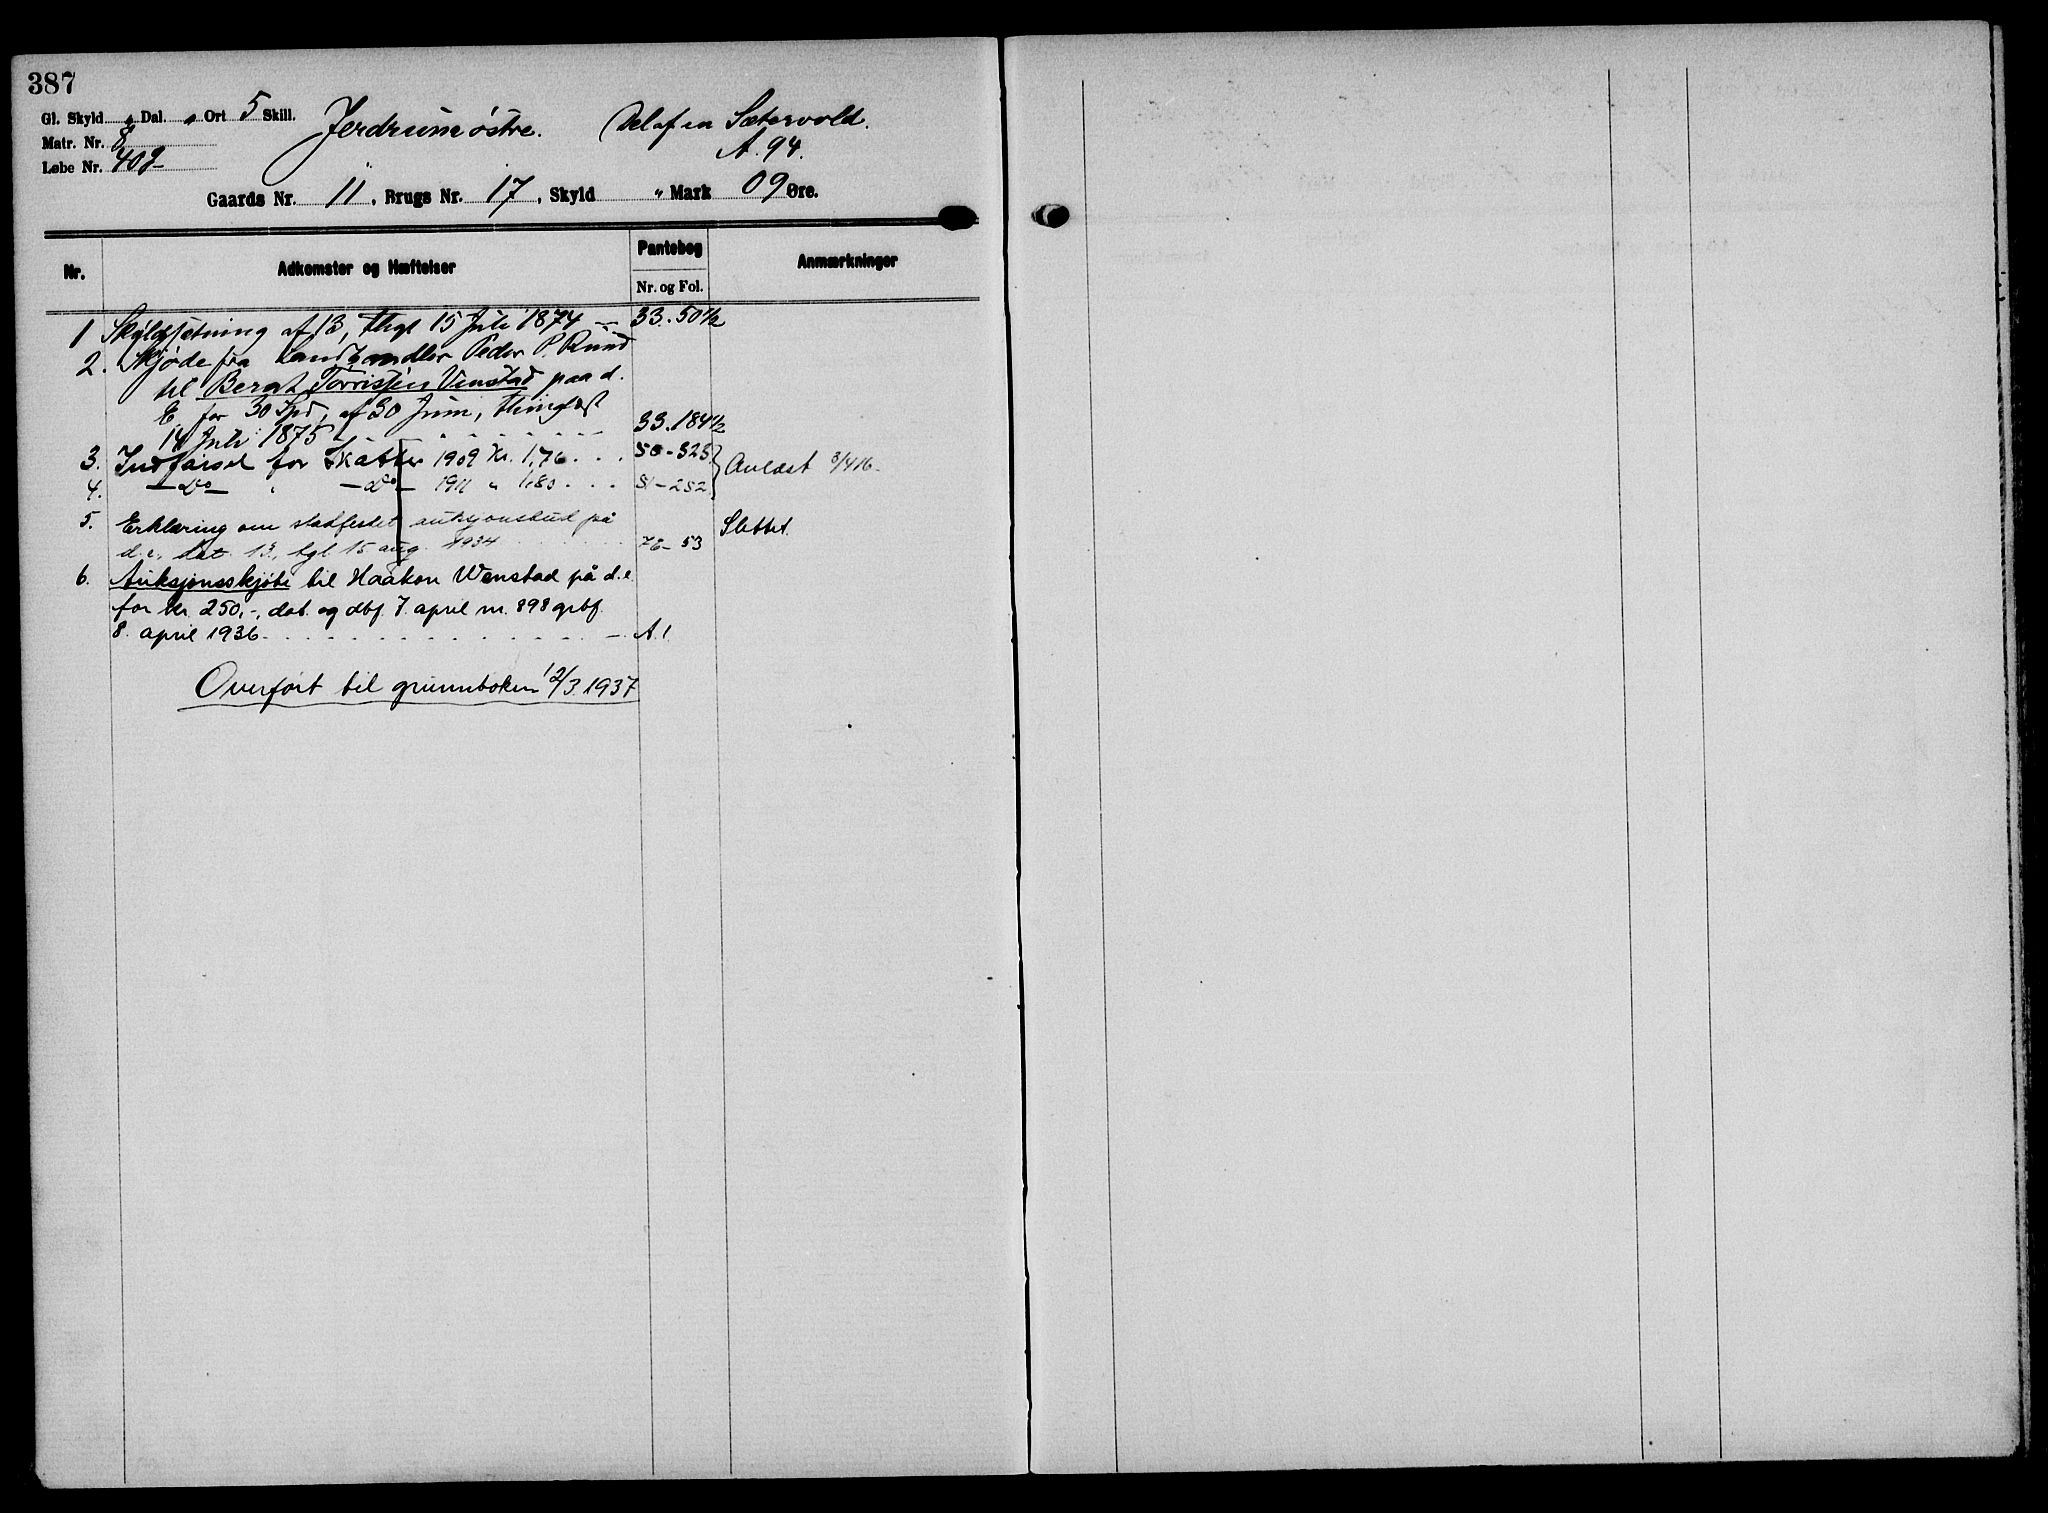 387
Gl. Skyld „ Dal. „ Ort 5 Skill.
Matr. Nr. 8
Løbe Nr. 40g
Jerdrum østre. Del af en Sætervold.
A. 94.
Gaards Nr. 11, Brugs Nr. 17, Skyld „ Mark 09 Øre.
Nr. Adkomster og Hæftelser Pantebog Anmærkninger
Nr. og Fol.
1 Skyldsetning af 13, thgl 15 Juli 1874 — 33. 50 1/2
2. Skjøde fra Landhandler Peder P. Ruud
til Bernt Torristen Vinstad paa d.
E. for 30 Spd, af 30 Juni, thinglæst
14 Juli 1875 33. 184 1/2
3. Indførsel for Skatter 1909 Kr. 1,76 . . . 50-325
4. — Do — „ — Do — 1911 „ 1,80 . . . 51-252 } Avlæst 3/4 16.
5. Erklæring om stadfestet auksjonsbud på
d.e. dat. 13., tgl. 15 aug. 1934 76-53 Slettet.
6. Auksjonsskjøte til Haakon Wenstad på d.e.
for kr. 250,-, dat. og dbf. 7. april nr. 898 grbf.
8. april 1936 . . . — A.1.
Overført til grunnboken 12/3. 1937